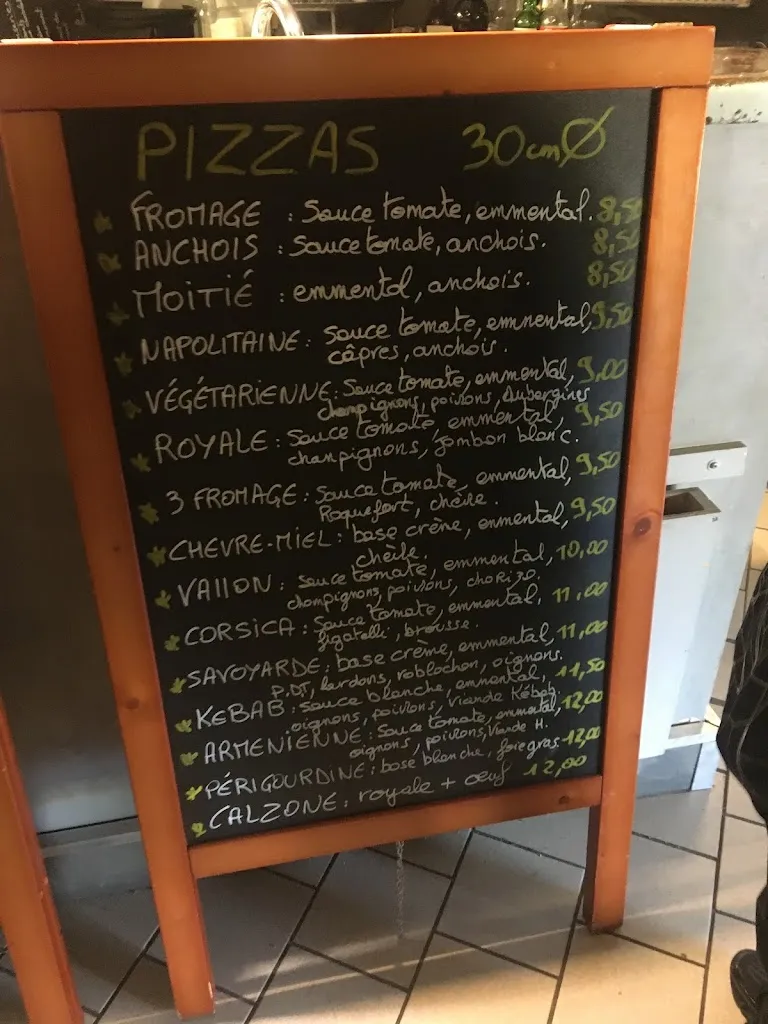 PIZZAS 30cm Ø
FROMAGE : Sauce tomate, emmental. 8,50
ANCHOIS : Sauce tomate, anchois. 8,50
MOITIÉ : emmental, anchois. 8,50
NAPOLITAINE : Sauce tomate, emmental, 9,50
câpres, anchois.
VÉGÉTARIENNE : Sauce tomate, emmental, 9,00
champignons, poivrons, Aubergines
ROYALE : Sauce tomate, emmental, 9,50
champignons, jambon blanc.
3 FROMAGE : Sauce tomate, emmental, 9,50
Roquefort, chèvre.
CHEVRE-MIEL : base crème, emmental, 9,50
chèvre.
VALLON : Sauce tomate, emmental, 10,00
champignons, poivrons, chorizo.
CORSICA : Sauce tomate, emmental, 11,00
figatelli, brousse.
SAVOYARDE : base crème, emmental, 11,00
P.DT, lardons, roblochon, oignons.
KEBAB : Sauce blanche, emmental, 11,50
oignons, poivrons, Viande Kébab.
ARMENIENNE : Sauce tomate, emmental, 12,00
oignons, poivrons, Viande H.
PÉRIGOURDINE : base blanche, foie gras 12,00
CALZONE : royale + oeuf 12,00